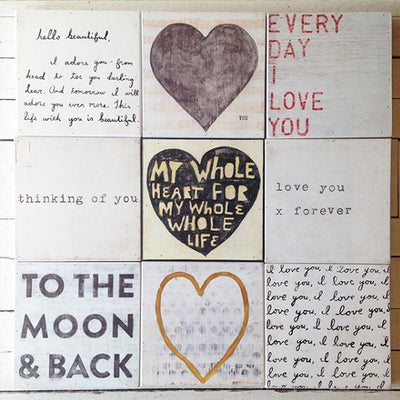 hello beautiful,
i adore you - from
head to toe you darling
dear. And tomorrow i will
adore you even more. This
life with you is beautiful.
YOU
EVERY
DAY
I
LOVE
YOU
thinking of you
MY WHOLE
HEART FOR
MY WHOLE
WHOLE
LIFE
love you
x forever
TO THE
MOON
& BACK
I love you, I love you,
love you, I love you, I
I love you, I love you,
love you, I love you, I
I love you, I love you,
love you, I love you, I
love you, I love you
I love you, I love